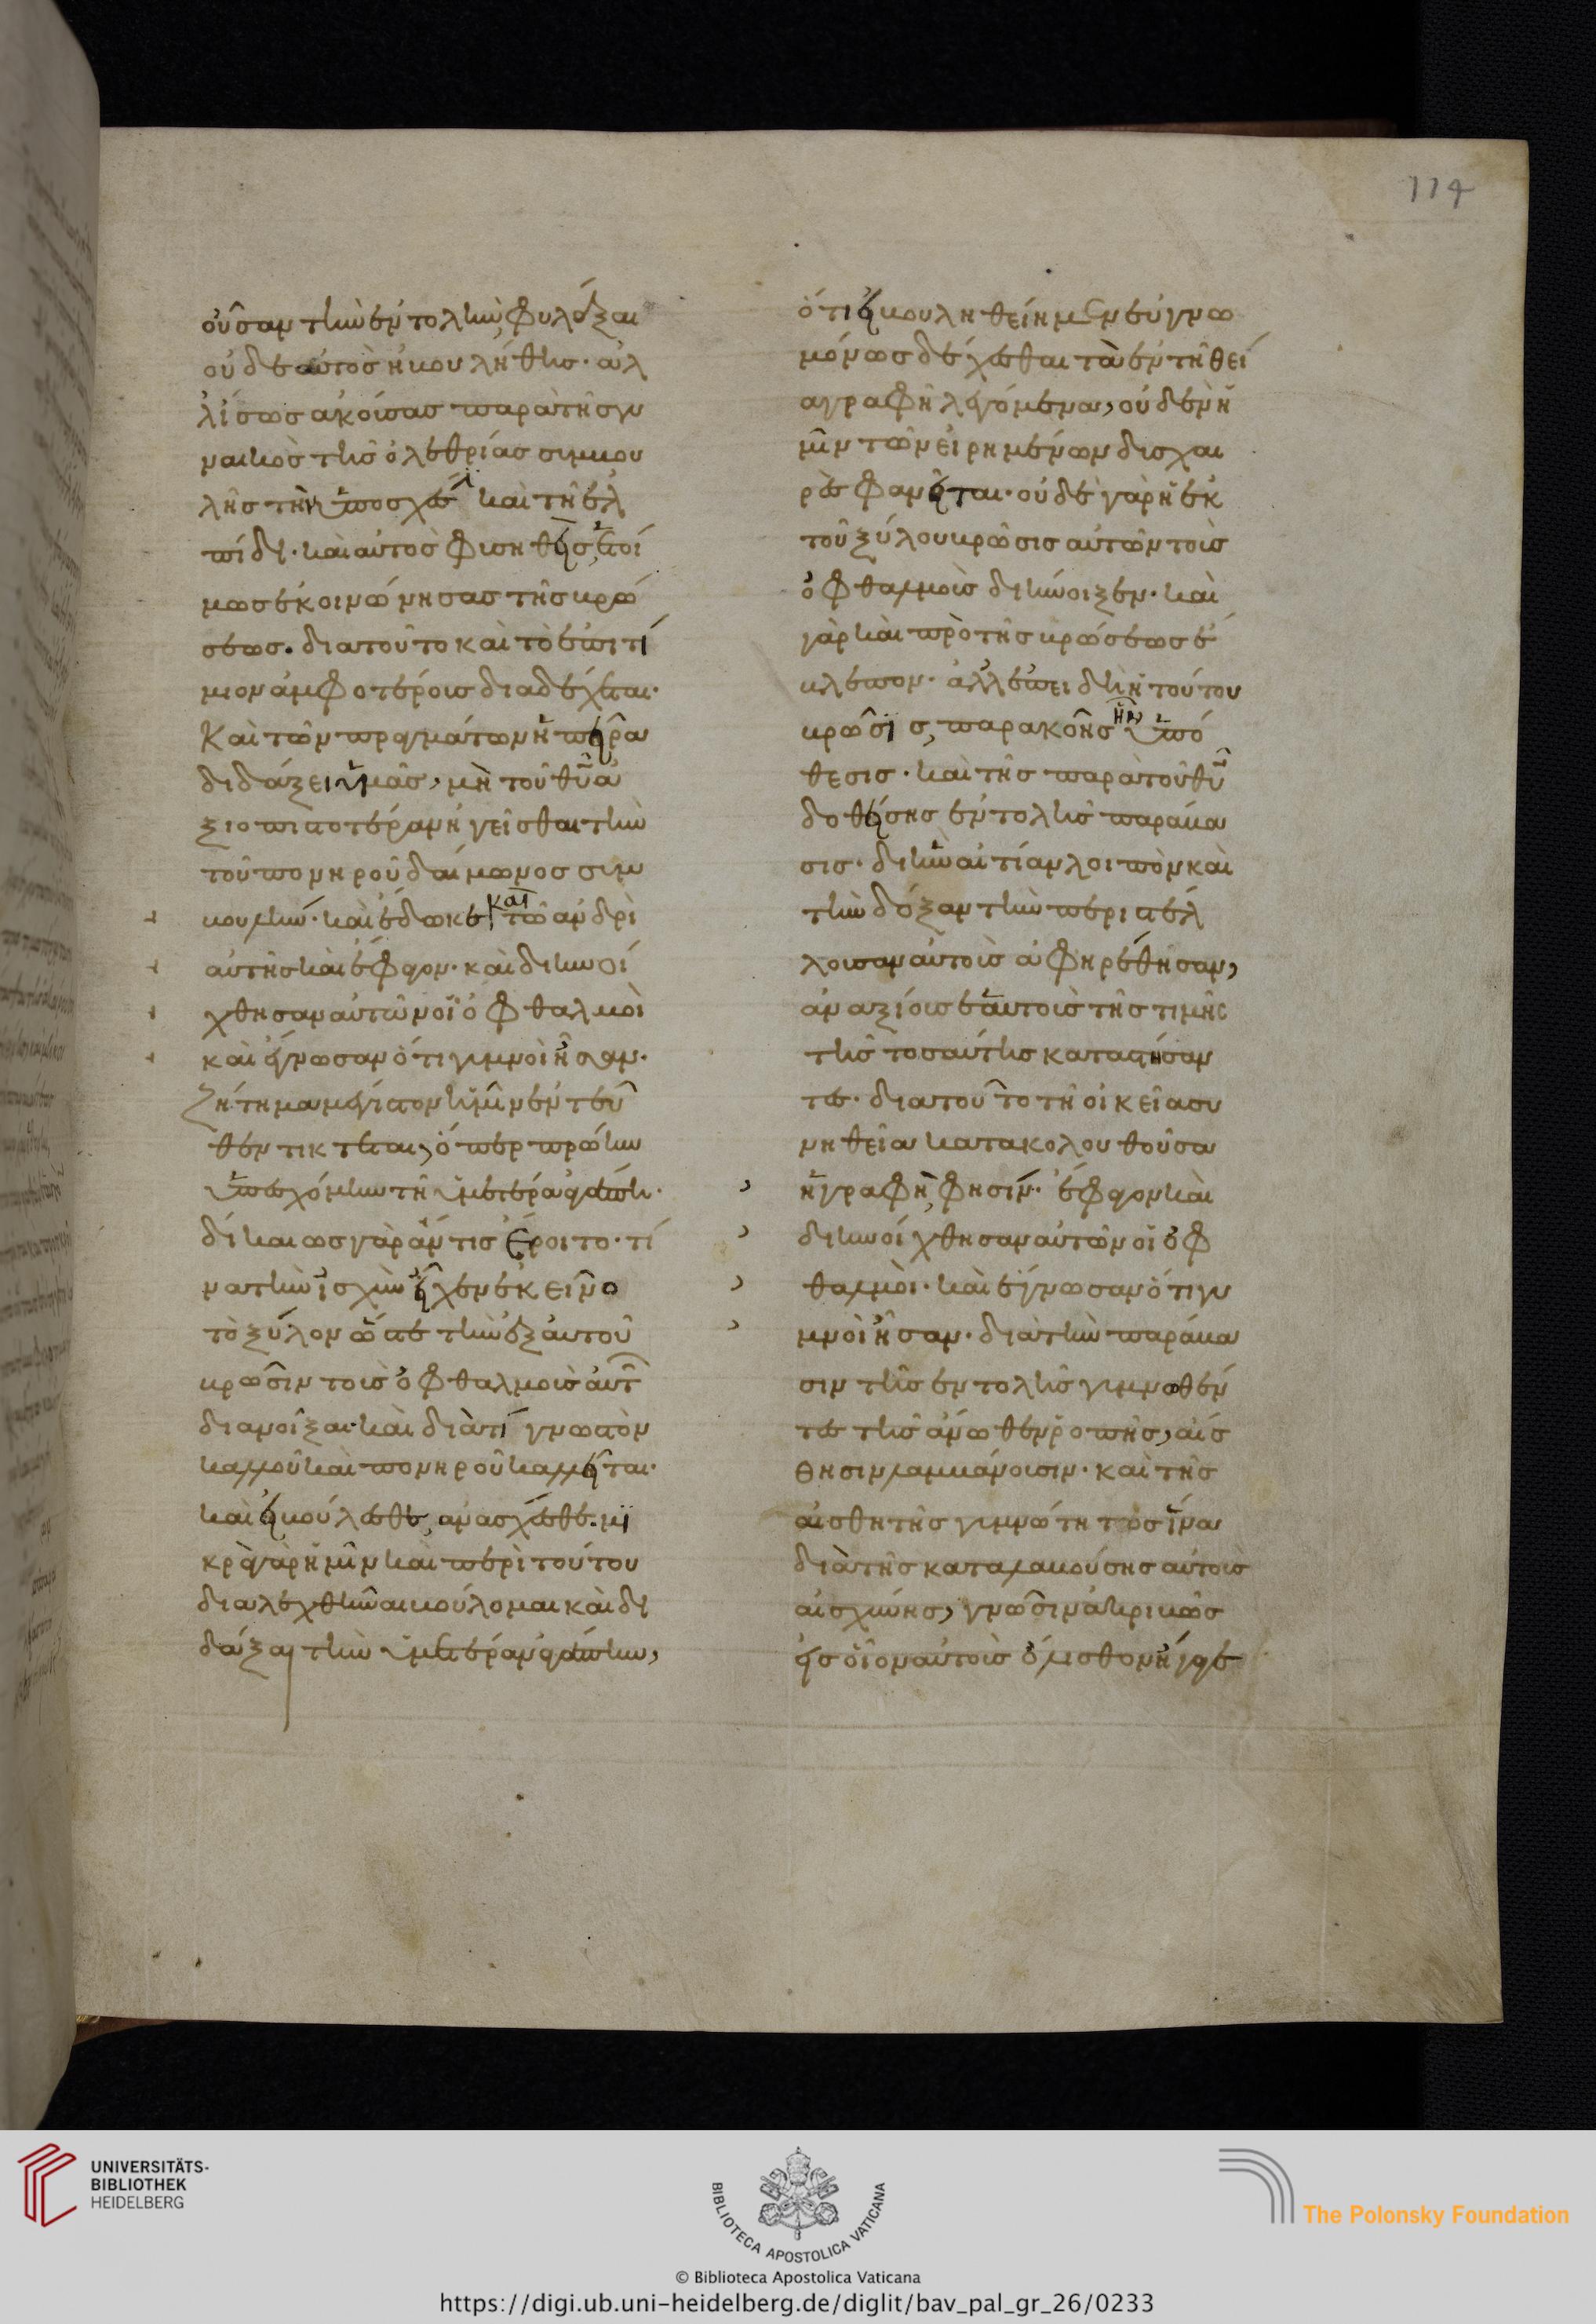 114
οὖσαν τὴν ἐντολὴν φυλάξαι
οὐδὲ αὐτὸς ἠβουλήθης· ἀλ
λ' ἴσως ἀκούσας παρὰ τῆς γυ
ναικὸς τῆς ὀλεθρίας συμβου
λῆς τῆ ὑποσχέσει καὶ τῆ ἐλ
πίδι· καὶ αὐτὸς φυσηθεὶς, ἑτοί
μως ἐκοινώνησας τῆς βρώ
σεως. διατοῦτο καὶ τὸ ἐπιτί
μιον ἀμφοτέροις διαδέχεται·
Καὶ τῶν πραγμάτων ἡ πεῖρα
διδάξει ὑμᾶς, μὴ τοῦ θῦ ἀ
ξιοπιστοτέραν ἡγεῖσθαι τὴν
τοῦ πονηροῦ δαίμωνος συμ
βουλήν· καὶ ἔδωκε καὶ τῶ ἀνδρὶ
αὐτῆς καὶ ἔφαγον· καὶ διηνοί
χθησαν αὐτῶν οἱ ὀφθαλμοὶ
καὶ ἔγνωσαν ὅτι γυμνοὶ ἦσαν·
ζήτημα μέγιστον ἡμῖν ἐντεῦ
θεν τίκτεται, ὅπερ πρώην
ὑπεσχόμην τῆ ὑμετέρα ἀγάπη·
δίκαιως γὰρ ἄν τις ἔροιτο· τί
να τὴν ἰσχὺν εἶχεν ἐκεῖνο
τὸ ξύλον ὥστε τὴν ἐξ αὐτοῦ
βρῶσιν τοὺς ὀφθαλμοὺς αὐτ
διανοῖξαι· καὶ διατί γνωστὸν
καλοῦ καὶ πονηροῦ καλεῖται·
καὶ εἰ βούλεσθε, ἀνάσχεσθε. μι
κρὰ γὰρ ἡμῖν καὶ περὶ τούτου
διαλεχθῆναι βούλομαι καὶ δι
δάξαι τὴν ὑμετέραν ἀγάπην,
ὅτι εἰ βουληθείημεν εὐγνω
μόνως δέχεσθαι τὰ ἐν τῆ θεί
α γραφῆ λεγόμενα, οὐδὲν ἡ
μῖν τῶν εἰρημένων δυσχαι
ρὲς φανεῖται· οὐδὲ γὰρ ἡ ἐκ
τοῦ ξύλου βρῶσις αὐτῶν τοὺς
ὀφθαλμοὺς διήνοιξεν· καὶ
γὰρ καὶ πρὸ τῆς βρώσεως ἔ
βλεπον· ἀλλ' ἐπειδὴ ἡ τούτου
βρῶσις, παρακοῆς ἦν ὑπό
θεσις· καὶ τῆς παρὰ τοῦ θῦ
δοθείσης ἐντολῆς παράβα
σις· δι' ἣν αἰτίαν λοιπὸν καὶ
τὴν δόξαν τὴν περιστέλ
λουσαν αὐτοὺς ἀφηρέθησαν,
ἀναξίους ἑαυτοὺς τῆς τιμῆς
τῆς τοσαύτης καταστήσαν
τες· διατοῦτο τῆ οἰκεία συ
νηθεία κατακολουθοῦσα
ἡ γραφὴ, φησίν· ἔφαγον καὶ
διηνοίχθησαν αὐτῶν οἱ ὀφ
θαλμοὶ· καὶ ἔγνωσαν ὅτι γυ
μνοὶ ἦσαν· διὰ τὴν παράβα
σιν τῆς ἐντολῆς γυμνωθέν
τες τῆς ἄνωθεν ῥοπῆς, αἴσ
θησιν λαμβάνουσιν· καὶ τῆς
αἰσθητῆς γυμνώτητος ἵνα
διὰ τῆς καταλαβούσης αὐτοὺς
αἰσχύνης, γνῶσιν ἀκριβῶς
εἰς οἷον αὐτοὺς ὄλισθον ἤγαγε
UNIVERSITÄTS-
BIBLIOTHEK
HEIDELBERG
BIBLIOTECA APOSTOLICA VATICANA
The Polonsky Foundation
© Biblioteca Apostolica Vaticana
https://digi.ub.uni-heidelberg.de/diglit/bav_pal_gr_26/0233